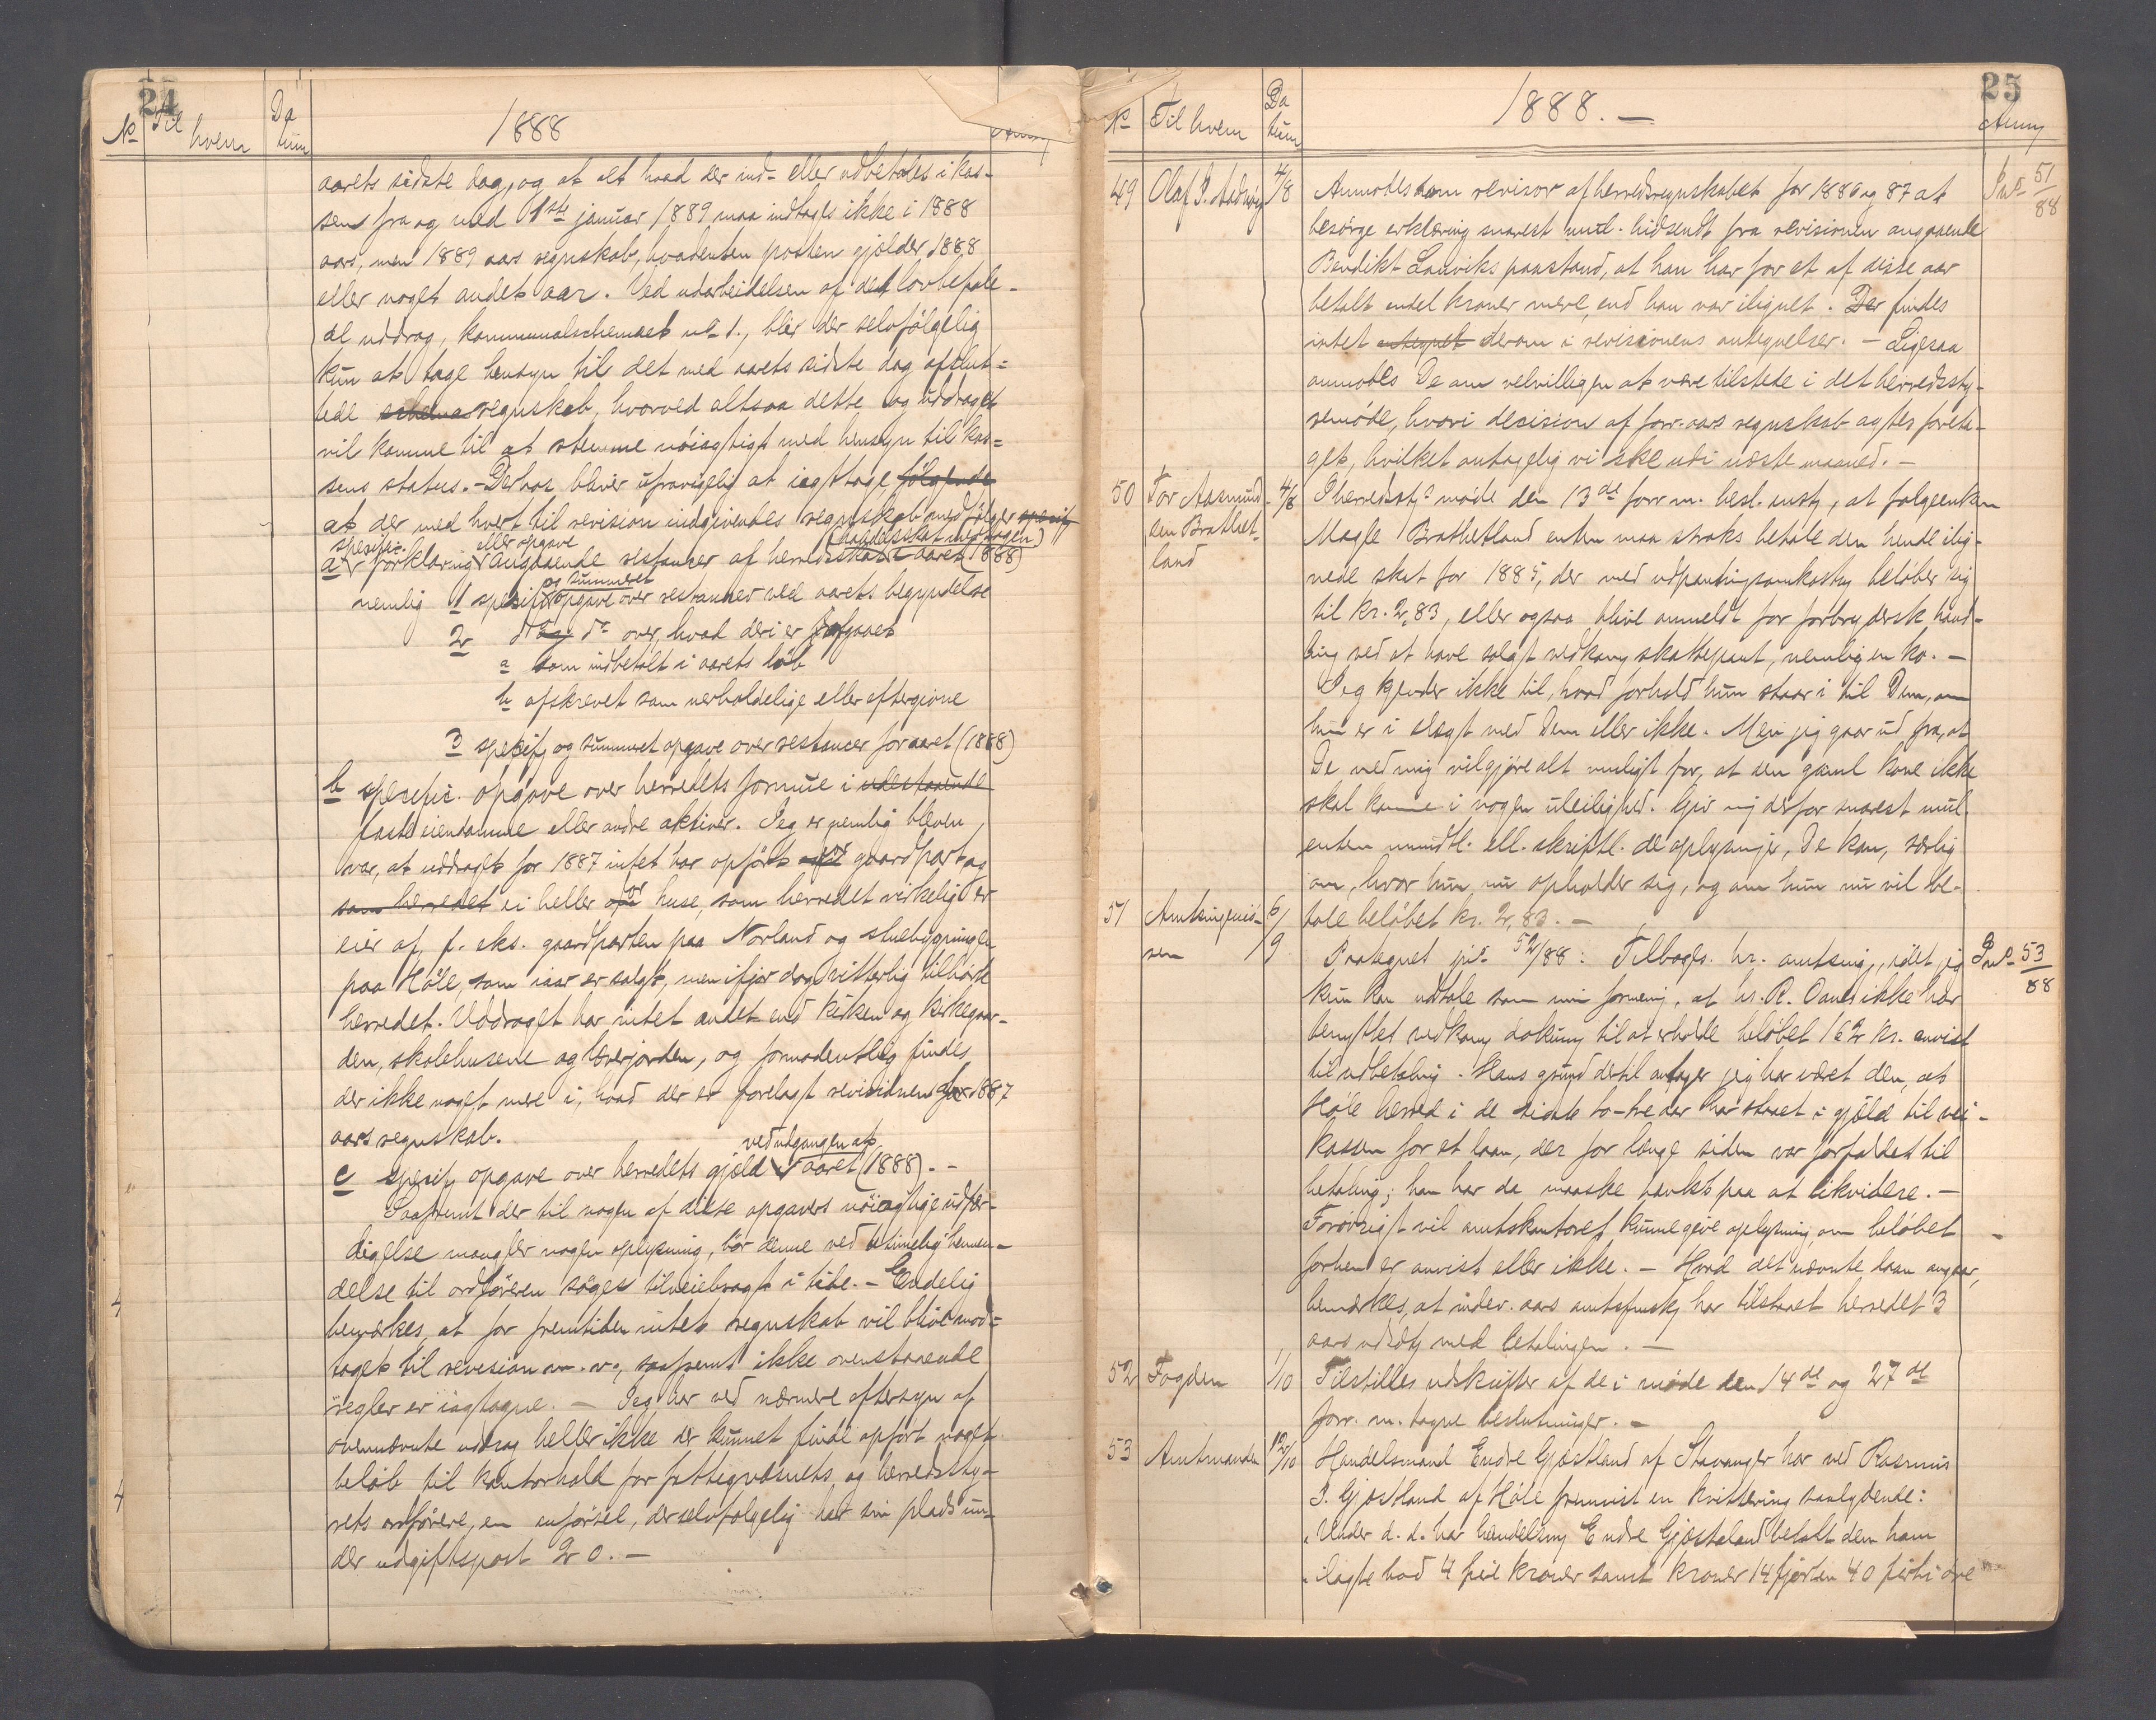 24
№ Til hvem Da tum 1888 Anm
aarets sidste dag, og at alt hvad der ind- eller udbetales i kas-
sen fra og med 1ste januar 1889 maa indtages ikke i 1888
aars, men 1889 aars regnskab, hvadenten posten gjælder 1888
eller noget andet aar. Ved udarbeidelsen af det lovbefale-
de uddrag, kommunalschemaet no 1., blir der selvfölgelig
kun at tage hensyn til det med aarets sidste dag afslut-
tede schema regnskab, hvorved altsaa dette og uddraget
vil komme til at stemme nöiagtigt med hensyn til kas-
sens status. - Derhos bliver ufravigelig at iagttage fölgende
at der med hvert til revision indgivendes regnskab medfölger specif
specific. eller opgave (hundeskat medtagen)
a forklaring angaaende restancer af herredsskat i aaret (1888)
og summeret
nemlig 1 specif opgave over restancer ved aarets begyndelse
2 do do over, hvad deri er afgaaet
a som indbetalt i aarets löb
b afskrevet som uerholdelige eller eftergivne
3 specif og summeret opgave over restancer for aaret (1888)
b specific. opgave over herredets formue i udestaaende
faste eiendomme eller andre aktiver. Jeg er nemlig bleven
var, at uddraget for 1887 intet har opfört af gaardpart og
som herredet ei heller af huse, som herredet virkeligt er
eier af, f. eks. gaardparten paa Norland og stuebygningen
paa Höle, som iaar er solgt, men ifjor dog vitterlig tilhörte
herredet. Uddraget har intet andet end kirken og kirkegaar-
den, skolehusene og lærerjorden, og formodentlig findes
der ikke noget mere i, hvad der er forelagt revisionen for 1887
aars regnskab.
ved udgangen af
c specif opgave over herredets gjæld aaret (1888). -
Saafremt der til nogen af disse opgavers nöiagtige udfær-
digelse mangler nogen oplysning, bör denne ved betimelig henven-
delse til ordföreren söges tilveiebragt i tide. - Endelig
bemærkes, at for fremtiden intet regnskab vil blive mod-
taget til revision m. v., saafremt ikke ovenstaaende
regler er iagtagne. - Jeg har ved nærmere eftersyn af
ovennævnte uddrag heller ikke der kunnet finde opfört noget
belöb til kontorhold for fattigvæsnets og herredssty-
rets ordförere, en udförsel, der selvfölgelig har sin plads un-
der udgiftspost 20. -
25
№ Til hvem Da tum 1888. - Anm
49 Olaf I. Aadnöy 4/8 Anmodes som revisor af herredsregnskabet for 1886 og 87 at Jno 51/88
besörge erklæring snarest mul. hidsendt fra revisionen angaaende
Bendikt Lauviks paastand, at han har for et af disse aar
betalt endel kroner mere, end han var ilignet. Der findes
intet antegnet derom i revisionens antegnelser. - Ligesaa
anmodes De om velvilligen at være tilstede i det herredssty-
remöde, hvori decision af forr. aars regnskab agtes foreta-
get, hvilket antagelig vi ske udi næste maaned. -
50 Tor Aasmund- 4/8 I herredsts möde den 13de forr. m. besl. ensty, at folgeenken
sen Brathet- Magle Brathetland enten maa straks betale den hende ilig-
land nede skat for 1885, der med udpantningsomkostn beløber sig
til kr. 2,83, eller ogsaa blive anmeldt for forbrydersk hand-
ling ved at have solgt vedkom skattepant, nemlig en ko. -
Jeg kjender ikke til, hvad forhold hun staar i til Dem, om
hun er i slægt med Dem eller ikke. Men jeg gaar ud fra, at
De med mig vil gjöre alt muligt for, at den gaml kone ikke
skal komme i nogen uleilighed. Giv mig derfor snarest mul.
enten mundtl. ell. skriftl. de oplysninger, De kan, særlig
om, hvor hun nu opholder sig, og om hun nu vil be-
tale belöbet kr. 2,83. -
51 Amtsingeniö- 6/9 Paategnet jno 52/88: Tilbages. hr. amtsing, idet jeg Jno 53/88
ren kun kan udtale som min formening, at hr. R. Oanes ikke har
benyttet vedkom dokum til at erholde belöbet 162 kr. anvist
til udbetaling. Hans grund dertil antager jeg har været den, at
Höle herred i de sidste to-tre aar har staaet i gjæld til vei-
kassen for et laan, der for længe siden var forfaldet til
betaling; han har da maaske tænkt paa at likvidere. -
Forövrigt vil amtskontoret kunne give oplysning, om belöbet
forhen er anvist eller ikke. - Hvad det nævnte laan angaar,
bemærkes, at indev. aars amtsformsk har tilstaaet herredet 3
aars udsætt med betalingen. -
52 Fogden 1/10 Tilstilles udskrifter af de i möde den 14de og 27de
forr. m. tagne beslutninger. -
53 Amtmanden 12/10 Handelsmand Endre Gjöstland af Stavanger har ved Rasmus
I. Gjöstland af Höle fremvist en kvittering saalydende:
"Under d. d. har handelsm Endre Gjöstaland betalt den ham
ilagte bod 4 fire kroner samt kroner 14 fjorten 40 firti öre